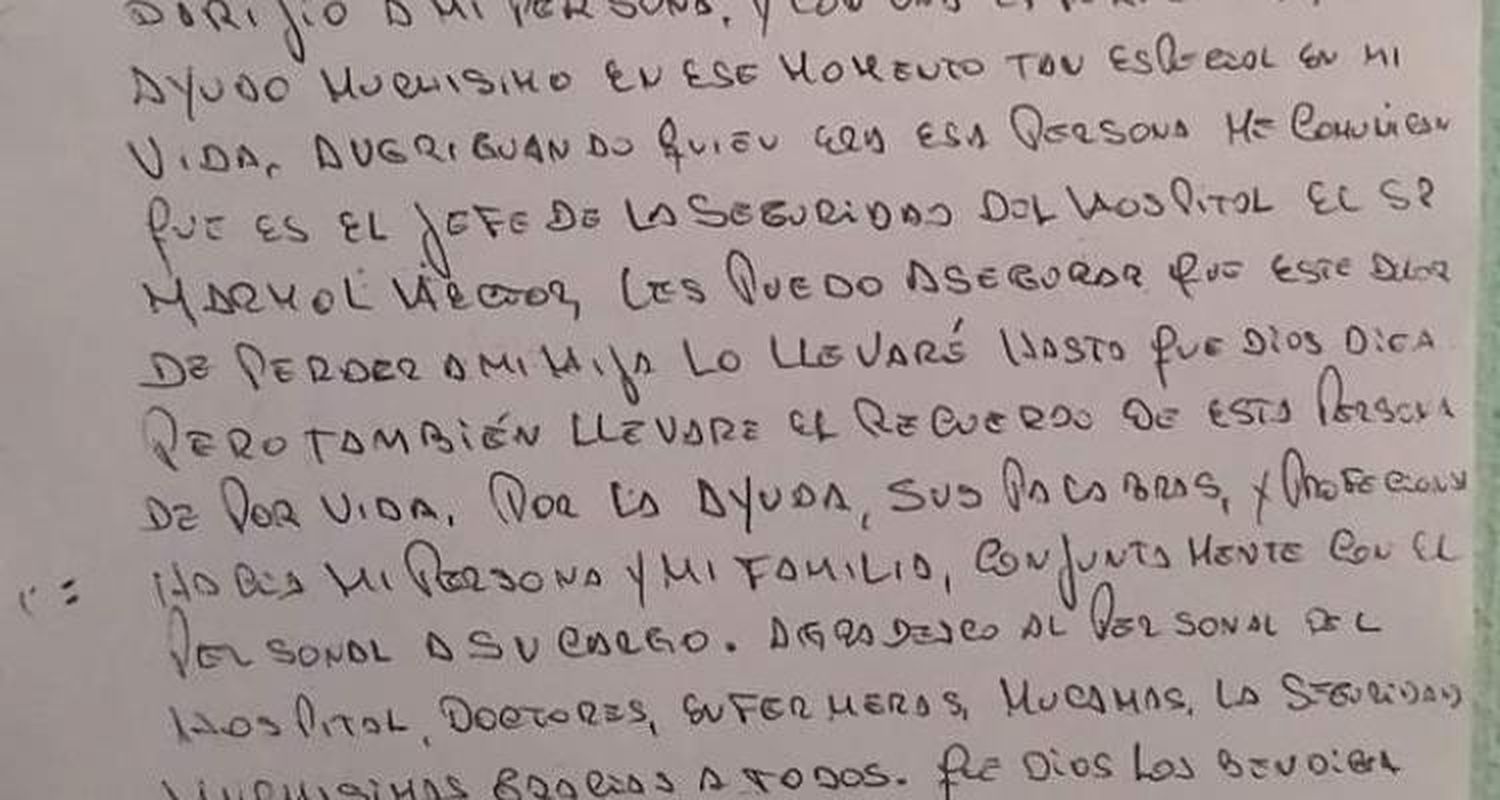 DIRIJIO A MI PERSONA, Y CON UNAS
AYUDO MUCHISIMO EN ESE MOMENTO TAN ESPECIAL EN MI
VIDA, AVERIGUANDO QUIEN ERA ESA PERSONA ME COMUNICAN
QUE ES EL JEFE DE LA SEGURIDAD DEL HOSPITAL EL SR
MARMOL HÉCTOR, LES PUEDO ASEGURAR QUE ESTE DOLOR
DE PERDER A MI HIJA LO LLEVARÉ HASTA QUE DIOS DIGA
PERO TAMBIÉN LLEVARE EL RECUERDO DE ESTA PERSONA
DE POR VIDA, POR LA AYUDA, SUS PALABRAS, Y PROFECIONAL
HACIA MI PERSONA Y MI FAMILIA, CONJUNTAMENTE CON EL
PERSONAL A SU CARGO. AGRADESCO AL PERSONAL DEL
HOSPITAL, DOCTORES, ENFERMERAS, MUCAMAS, LA SEGURIDAD
MUCHISIMAS GRACIAS A TODOS. QUE DIOS LOS BENDIGA